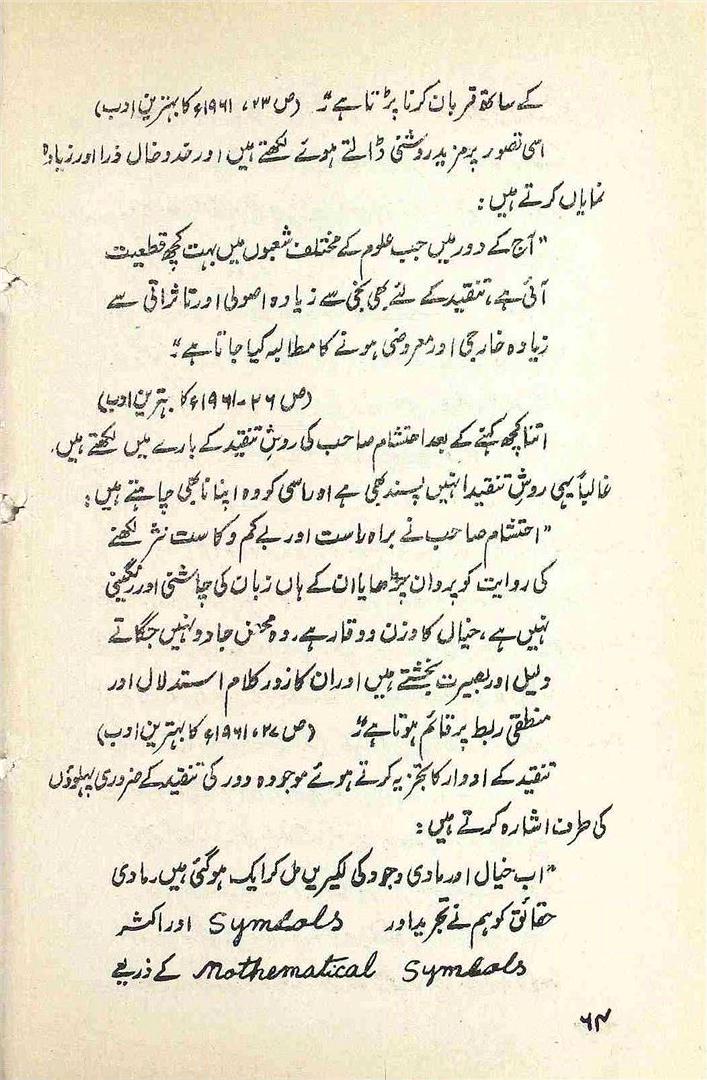 کے ساتھ قربان کرنا پڑتا ہے" (ص ۲۳، ۱۹۶۱ء کا بہترین ادب)
اسی تصور پر مزید روشنی ڈالتے ہوئے لکھتے ہیں اور خدوخال ذرا اور زیادہ
نمایاں کرتے ہیں:
"آج کے دور میں جب علوم کے مختلف شعبوں میں بہت کچھ قطعیت
آئی ہے، تنقید کے لئے بھی نجی سے زیادہ اصولی اور تاثراتی سے
زیادہ خارجی اور معروضی ہونے کا مطالبہ کیا جاتا ہے"
(ص ۲۶۔ ۱۹۶۱ء کا بہترین ادب)
اتنا کچھ کہنے کے بعد احتشام صاحب کی روشِ تنقید کے بارے میں لکھتے ہیں۔
غالباً یہی روشِ تنقید انہیں پسند بھی ہے اور اسی کو وہ اپنانا بھی چاہتے ہیں:
"احتشام صاحب نے براہ راست اور بے کم و کاست نثر لکھنے
کی روایت کو پروان چڑھایا ان کے ہاں زبان کی چاشنی اور رنگینی
نہیں ہے، خیال کا وزن و وقار ہے، وہ محض جادو نہیں جگاتے
دلیل اور بصیرت بخشتے ہیں اور ان کا زورِ کلام استدلال اور
منطقی ربط پر قائم ہوتا ہے" (ص ۲۷، ۱۹۶۱ء کا بہترین ادب)
تنقید کے ادوار کا تجزیہ کرتے ہوئے موجودہ دور کی تنقید کے ضروری پہلوؤں
کی طرف اشارہ کرتے ہیں:
"اب خیال اور مادی وجود کی لکیریں مل کر ایک ہو گئی ہیں، مادی
حقائق کو ہم نے تجرید اور Symbols اور اکثر
Mothematical Symbols کے ذریعے
۶۴